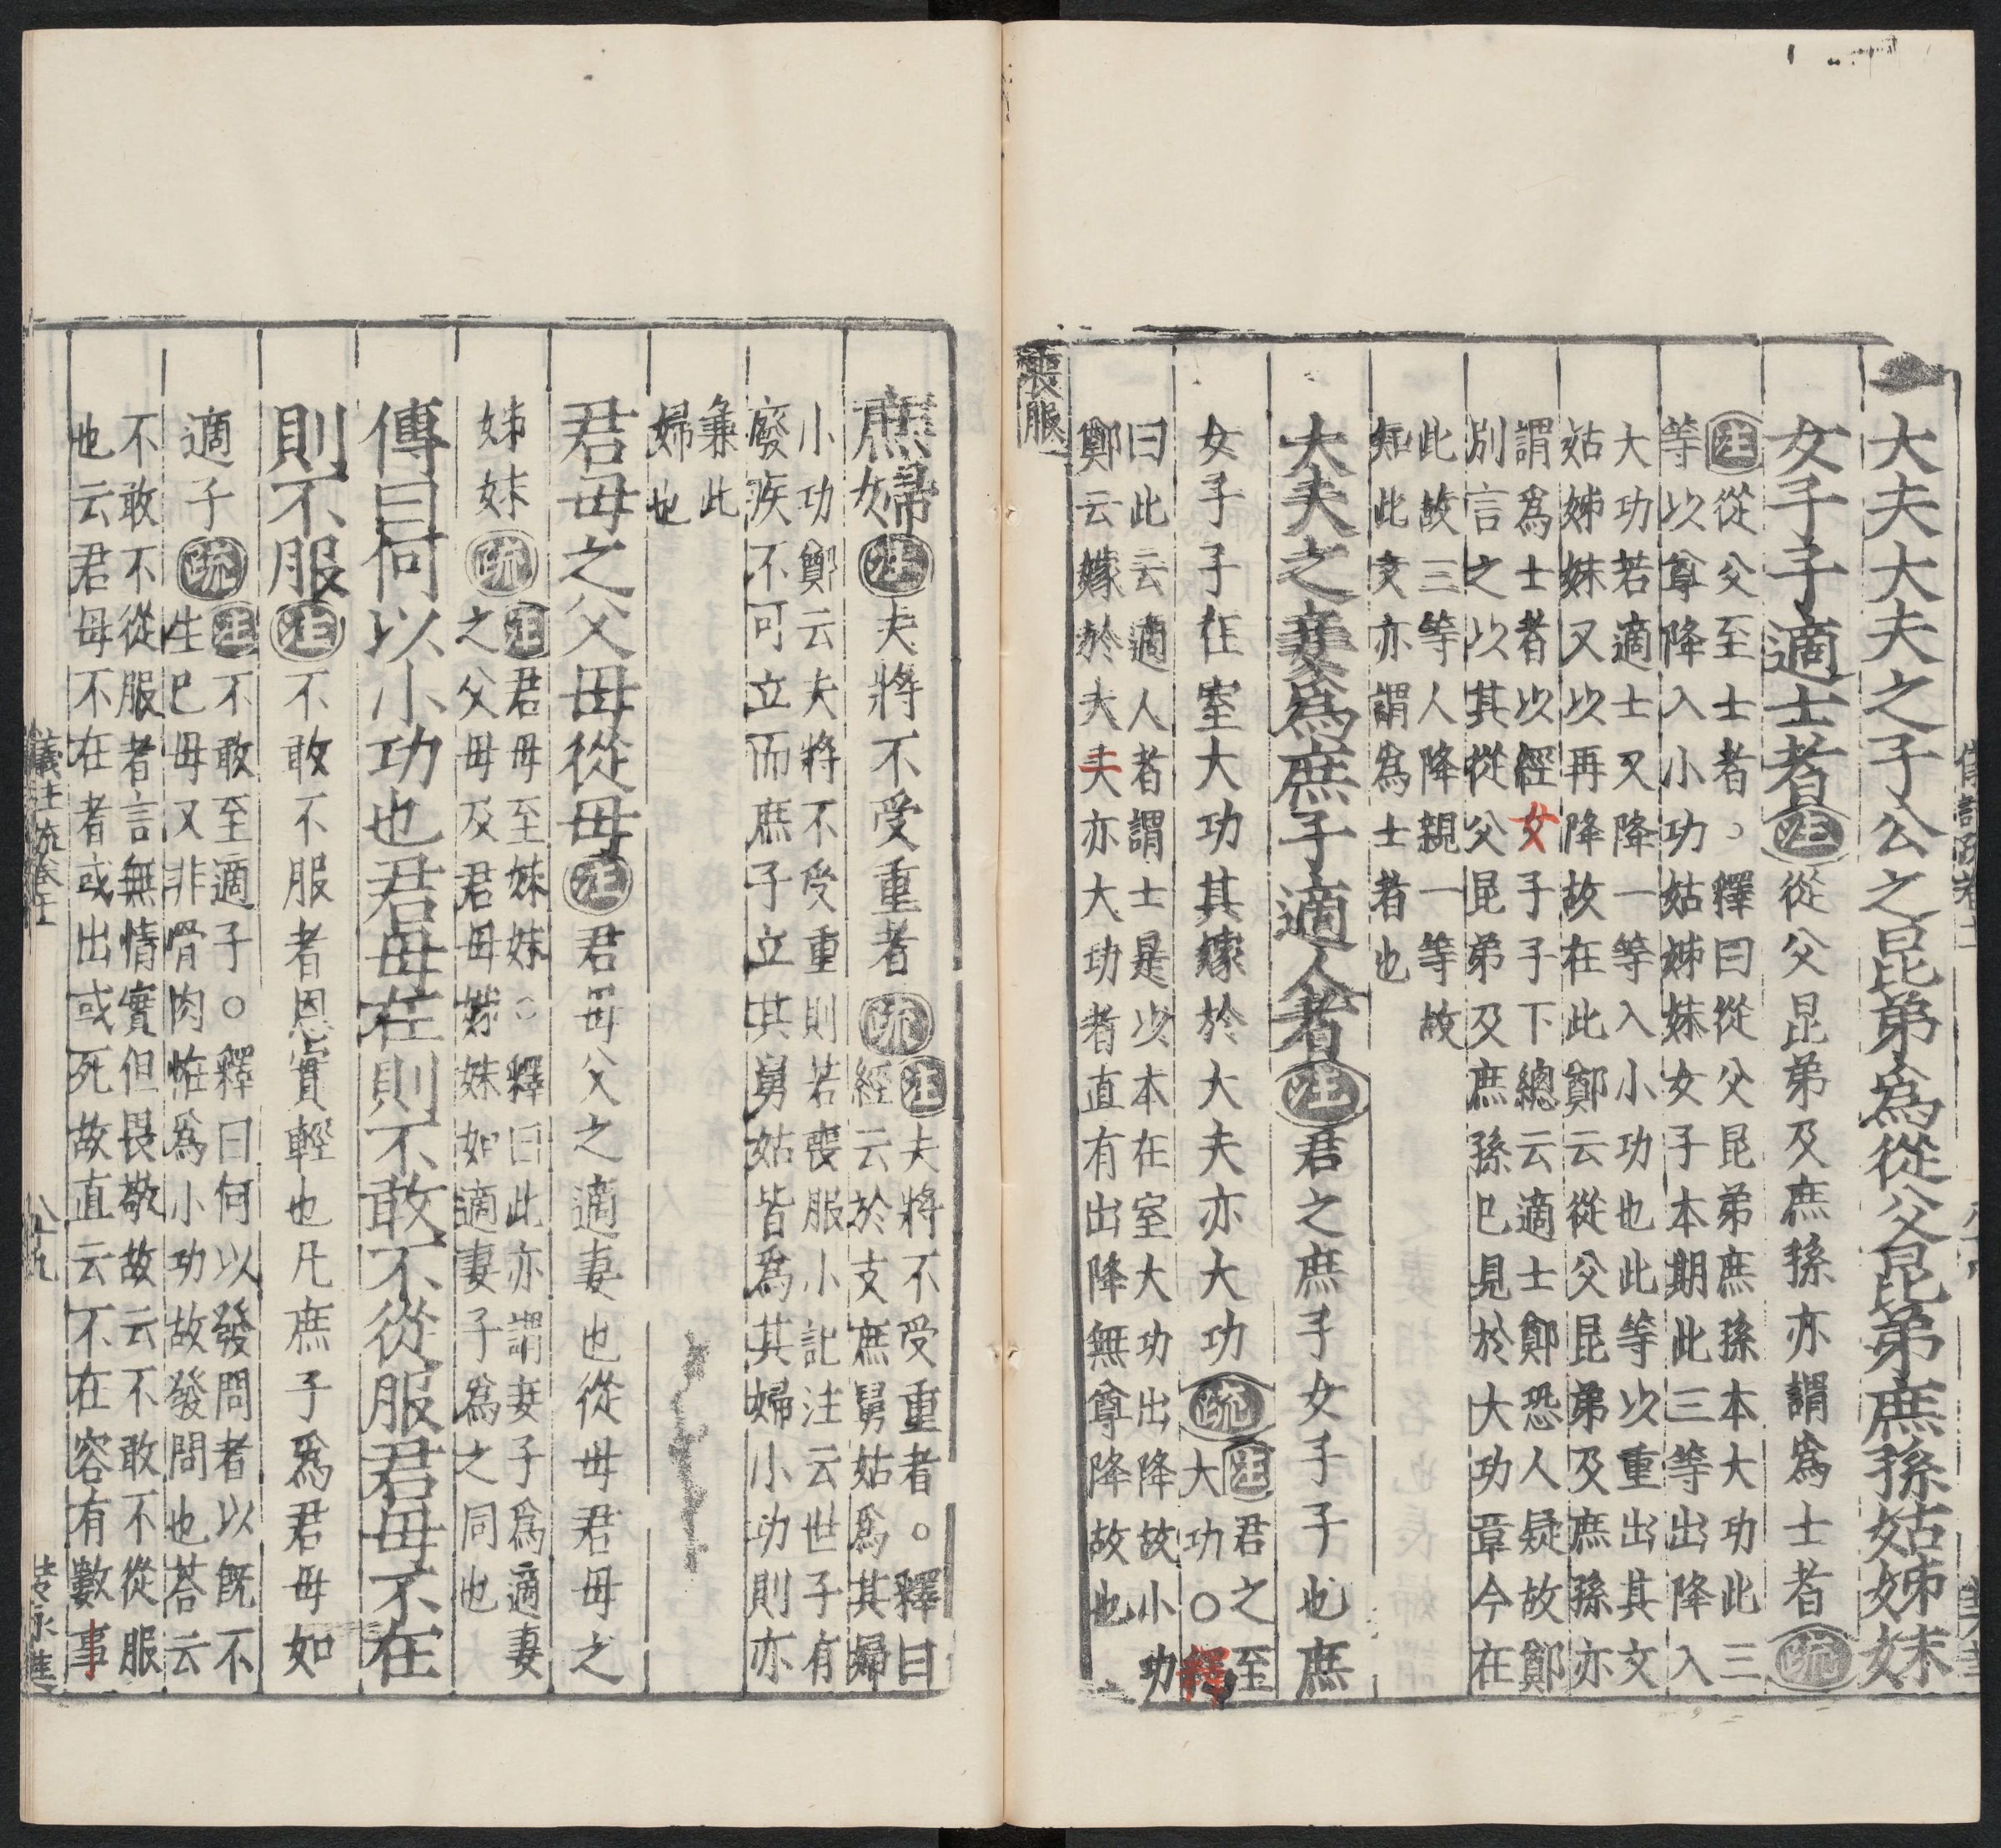 大夫大夫之子公之昆弟爲從父昆弟庶孫姑姊妹
女子子適士者注從父昆弟及庶孫亦謂爲士者疏
注從父至士者○釋曰從父昆弟庶孫本大功此三
等以尊降入小功姑姊妹女子本期此三等出降入
大功若適士又降一等入小功也此等以重出其文
姑姊妹又以再降故在此鄭云從父昆弟及庶孫亦
謂爲士者以經女子子下總云適士鄭恐人疑故鄭
別言之以其從父昆弟及庶孫已見於大功章今在
此故三等人降親一等故
知此文亦謂爲士者也
大夫之妾爲庶子適人者注君之庶子女子子也庶
女子子在室大功其嫁於大夫亦大功疏
注君之至
大功○釋
曰此云適人者謂士是以本在室大功出降故小功
鄭云嫁於夫夫亦大功者直有出降無尊降故也
喪服
庶婦注夫將不受重者疏
注夫將不受重者○釋曰
經云於支庶舅姑爲其婦
小功鄭云夫將不受重則若喪服小記注云世子有
廢疾不可立而庶子立其舅姑皆爲其婦小功則亦
兼此
婦也
君母之父母從母注君母父之適妻也從母君母之
姊妹疏
注君母至姊妹○釋曰此亦謂妾子爲適妻
之父母及君母姊妹如適妻子爲之同也
傳曰何以小功也君母在則不敢不從服君母不在
則不服注不敢不服者恩實輕也凡庶子爲君母如
適子疏
注不敢至適子○釋曰何以發問者以旣不
生已母又非骨肉惟爲小功故發問也荅云
不敢不從服者言無情實但畏敬故云不敢不從服
也云君母不在者或出或死故直云不在容有數事